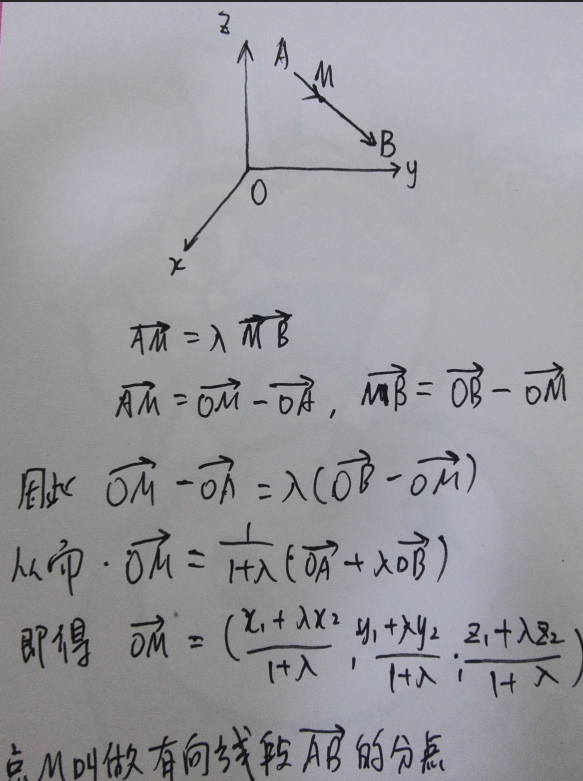 z
A
M
B
y
O
x
$\overrightarrow{AM} = \lambda \overrightarrow{MB}$
$\overrightarrow{AM} = \overrightarrow{OM} - \overrightarrow{OA}, \overrightarrow{MB} = \overrightarrow{OB} - \overrightarrow{OM}$
因此 $\overrightarrow{OM} - \overrightarrow{OA} = \lambda(\overrightarrow{OB} - \overrightarrow{OM})$
从而 · $\overrightarrow{OM} = \frac{1}{1+\lambda}(\overrightarrow{OA} + \lambda\overrightarrow{OB})$
即得 $\overrightarrow{OM} = (\frac{x_1+\lambda x_2}{1+\lambda}, \frac{y_1+\lambda y_2}{1+\lambda}, \frac{z_1+\lambda z_2}{1+\lambda})$
点M叫做有向线段 $\overrightarrow{AB}$ 的分点